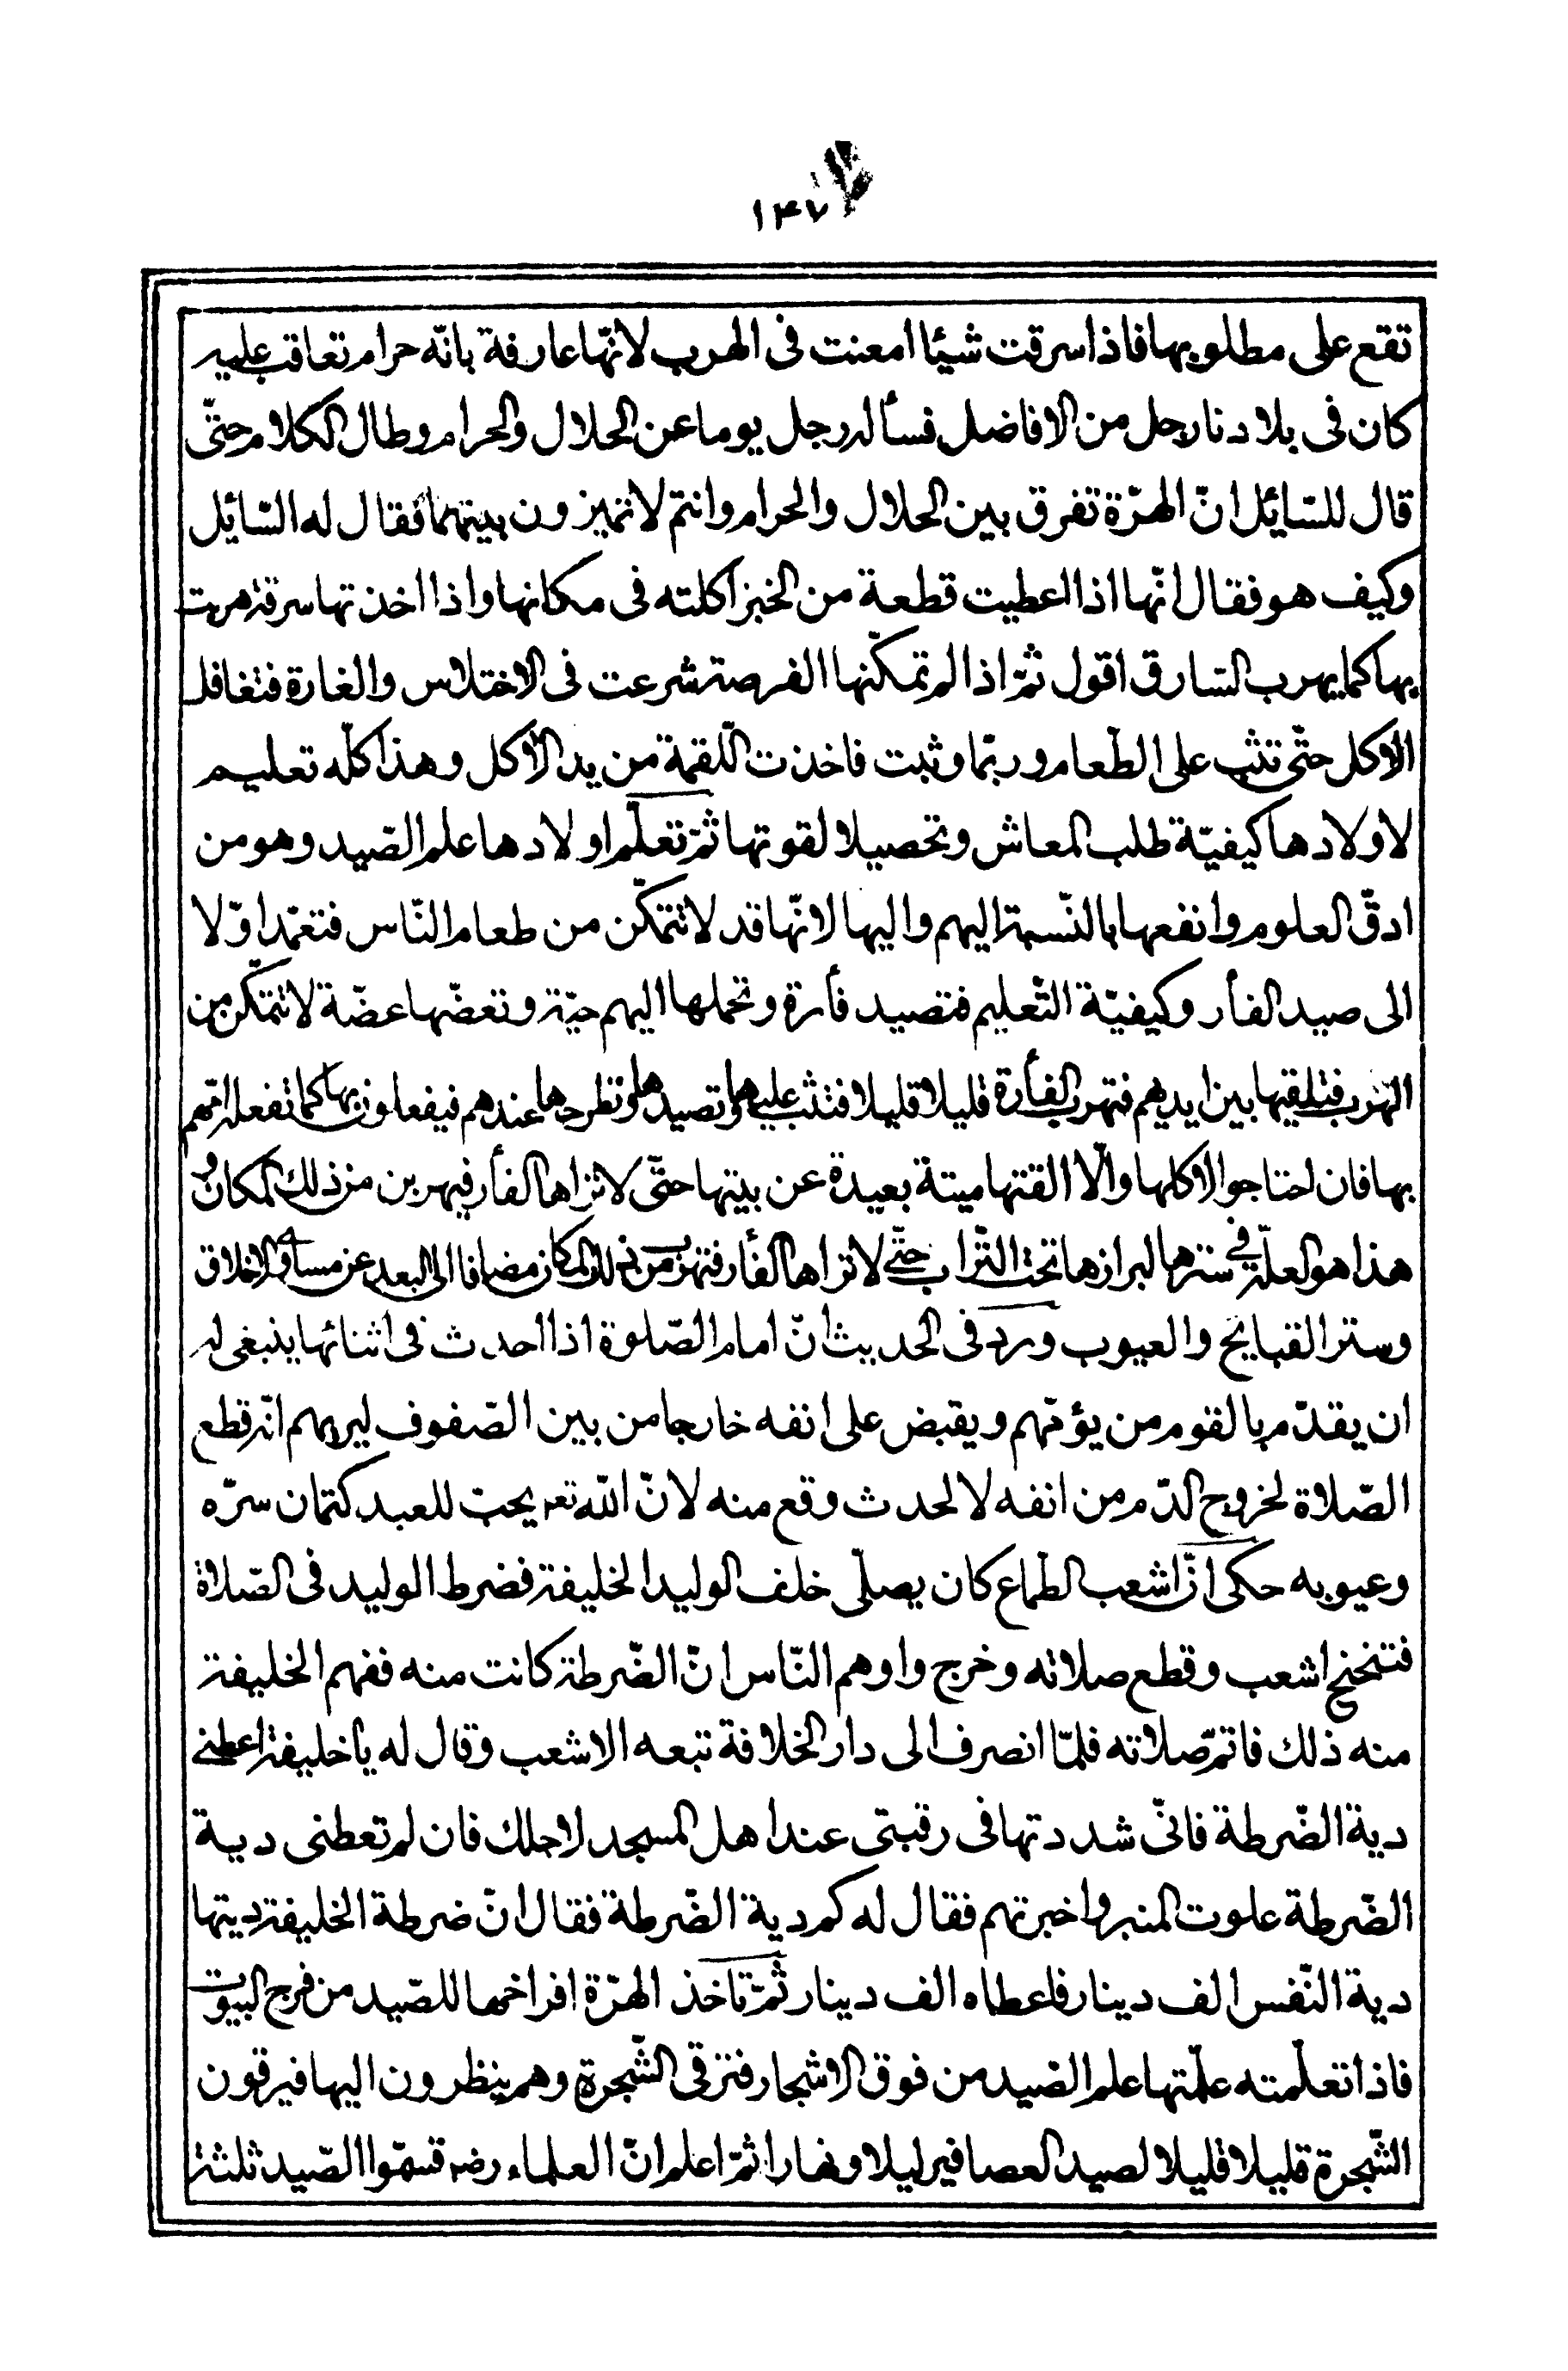 ١۴٧
تقع على مطلوبها فاذا سرقت شيئا امعنت فى الهرب لانّها عارفة بانّه حرام تعاقب عليه
كان فى بلادنا رجل من الافاضل فسأله رجل يوما عن الحلال والحرام وطال الكلام حتّى
قال للسّايئل انّ الهرّة تفرق بين الحلال والحرام وانتم لا تميزون بينهما فقال له السّايئل
وكيف هو فقال انّها اذا اعطيت قطعة من الخبز اكلته فى مكانها واذا اخذتها سرقة هربت
بها كما يهرب السّارق اقول ثمّ اذا لم تمكّنها الفرصة شرعت فى الاختلاس والغارة فتغافل
الاكل حتّى تثب على الطّعام وربّما وثبت فاخذت اللّقمة من يد الأكل وهذا كلّه تعليم
لاولادها كيفيّة طلب المعاش وتحصيلا لقوتها ثمّ تعلّم اولادها علم الصّيد وهو من
ادقّ العلوم وانفعها بالنّسبة اليهم واليها لانّها قد لا تتمكّن من طعام النّاس فتعمّد اوّلا
الى صيد الفأر وكيفيّة التّعليم فتصيد فأرة وتحملها اليهم حيّة وتعضّها عضّة لا تتمكّن من
الهرب فتلقيها بين ايديهم فتهرب الفأرة قليلا قليلا فتثب عليها وتصيدها وتطرحها عندهم فيفعلون بها كما تفعل امّهم
بها فان احتاجوا لاكلها والّا القتها ميتة بعيدة عن بيتها حتّى لا تراها الفأر فيهربن من ذلك المكان و
هذا هو العلّة فى سترها لبرازها تحت التّراب حتّى لا تراها الفأر فتهرب من ذلك المكان مضافا الى البعد عن مساوى الاخلاق
وستر القبايح والعيوب ورد فى الحديث انّ امام الصّلوة اذا احدث فى اثنائها ينبغى له
ان يقدّم بالقوم من يؤمّهم ويقبض على انفه خارجا من بين الصّفوف ليريهم انّه قطع
الصّلاة لخروج الدّم من انفه لا لحدث وقع منه لانّ اللّه تعه يحبّ للعبد كتمان سرّه
وعيوبه حكى انّ اشعب الطّماع كان يصلّى خلف الوليد الخليفة فضرط الوليد فى الصّلاة
فتنحنح اشعب وقطع صلاته وخرج واوهم النّاس انّ الضّرطة كانت منه ففهم الخليفة
منه ذلك فاتمّ صلاته فلمّا انصرف الى دار الخلافة تبعه الاشعب وقال له يا خليفة اعطنى
دية الضّرطة فانّى شددتها فى رقبتى عند اهل المسجد لاجلك فان لم تعطنى دية
الضّرطة علوت المنبر واخبرتهم فقال له كم دية الضّرطة فقال انّ ضرطة الخليفة ديتها
دية النّفس الف دينار فاعطاه الف دينار ثمّ تاخذ الهرّة افراخها للصّيد من فرج البيوت
فاذا تعلّمته علّمتها علم الصّيد من فوق الاشجار فترقى الشّجرة وهم ينظرون اليها فيرقون
الشّجرة قليلا قليلا لصيد العصافير ليلا ونهارا ثمّ اعلم انّ العلماء رضه قسّموا الصّيد ثلثة